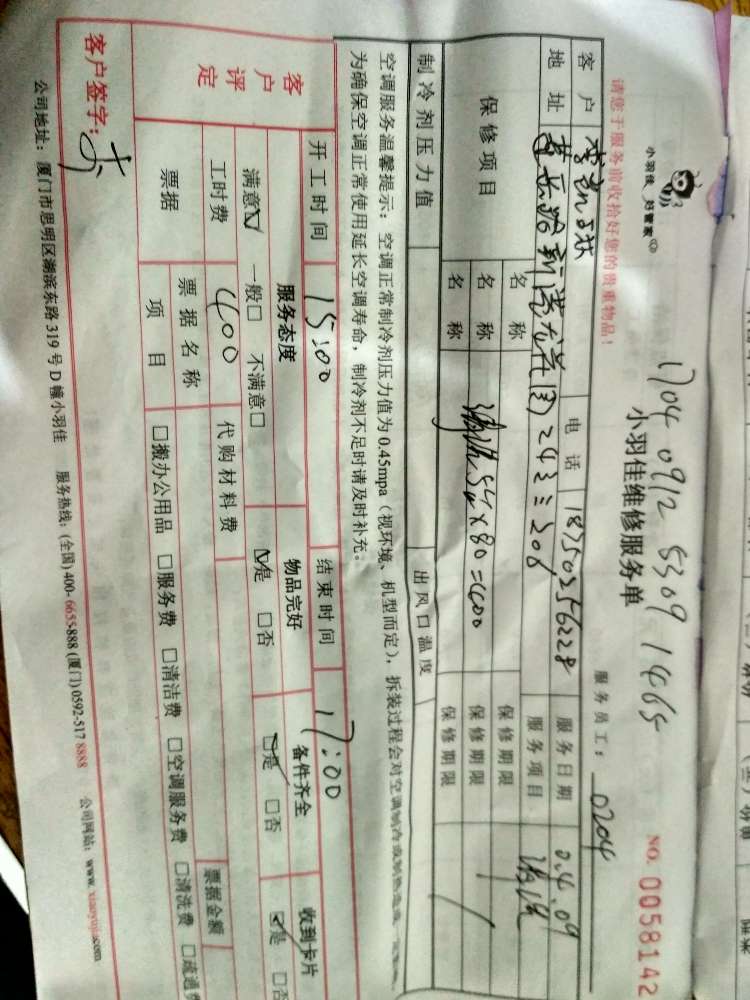 小羽佳 好管家
1704 0912 5309 1465
小羽佳维修服务单
NO. 0058142
请您于服务前收拾好您的贵重物品！
服务员工：0204
客户
电话 18750256228
服务日期 04.09
地址
243
208
服务项目 清洗
保修项目
名称
保修期限
名称 清洗 5台×80=400
保修期限
名称
保修期限
制冷剂压力值
出风口温度
空调服务温馨提示：空调正常制冷剂压力值为0.45mpa（视环境、机型而定），拆装过程会对空调制冷
为确保空调正常使用延长空调寿命，制冷剂不足时请及时补充。
开工时间 15:00
结束时间 17:00
客户评定
服务态度
物品完好
备件齐全
收到卡片
满意☑ 一般□ 不满意□
☑是 □否
☑是 □否
☑是 □否
工时费 400
代购材料费
票据
票据名称
票据金额
项目
□搬办公用品 □服务费 □清洁费 □空调服务费 □清洗费 □疏通费
客户签字：
公司地址：厦门市思明区湖滨东路319号D幢小羽佳 服务热线：(全国)400-6655-888 (厦门)0592-517 8888 公司网站：www.xiaoyujia.com